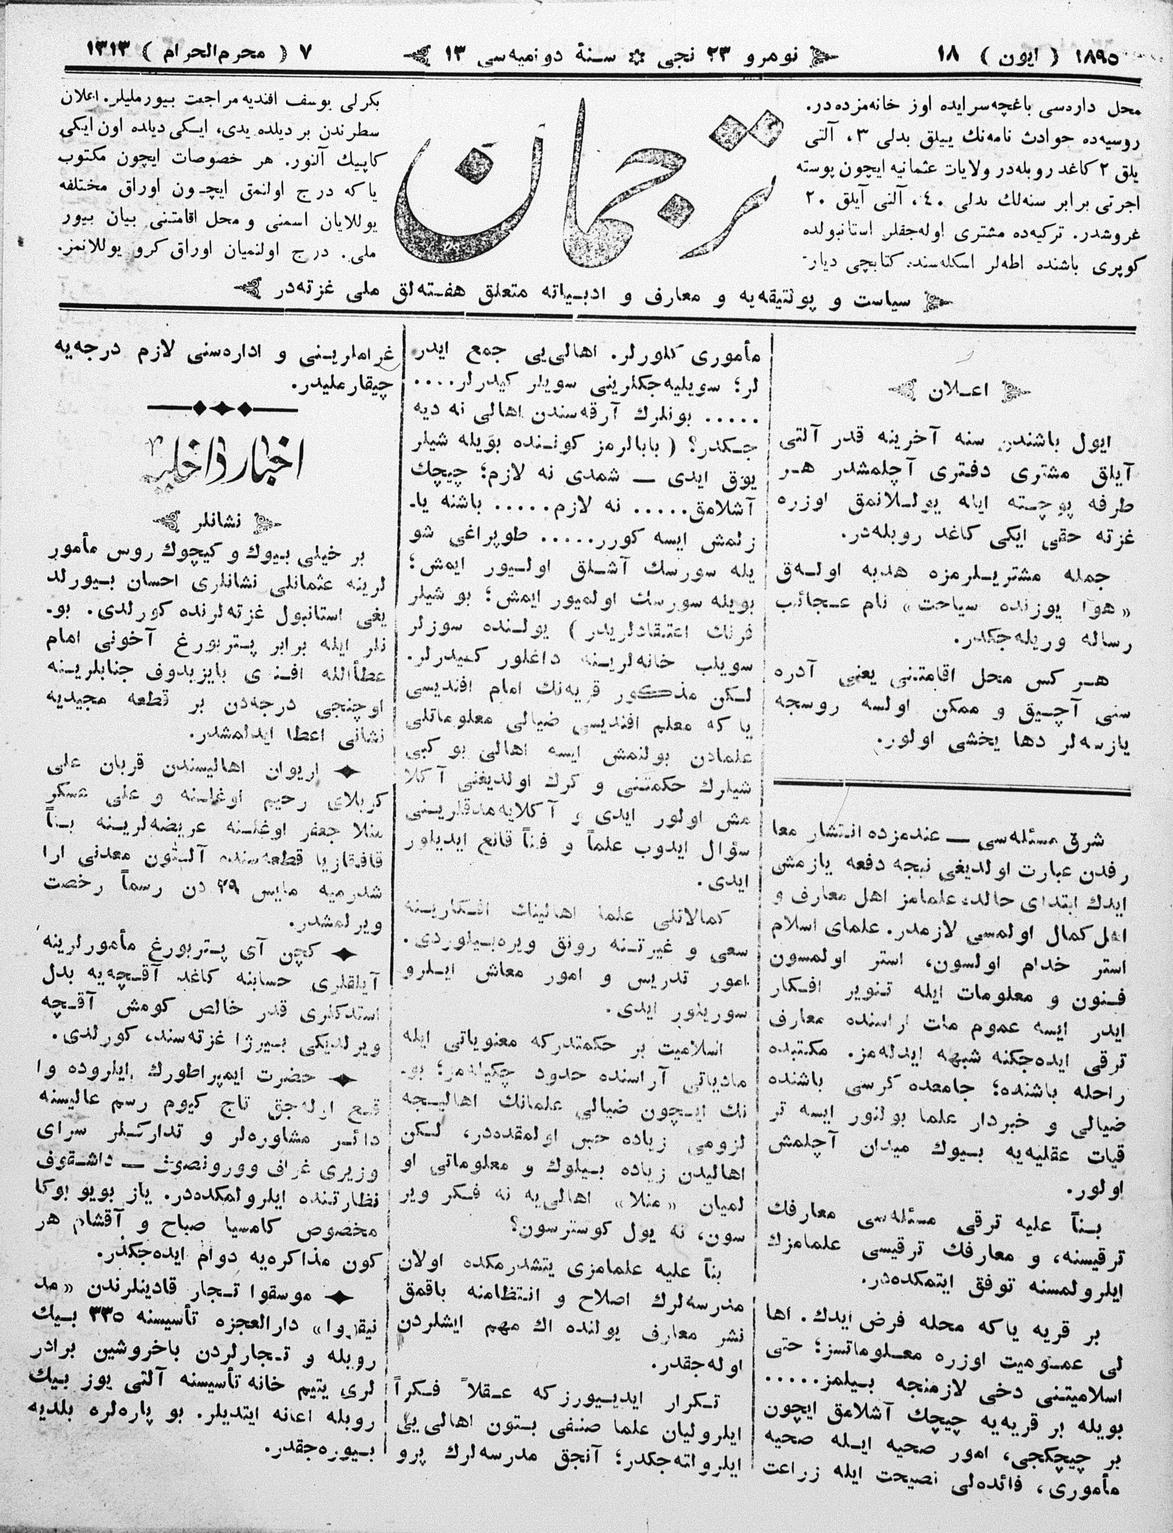 ١٨٩٥ ( ایون ) ١٨
نومرو ٢٣ نجی ✲ سنهٔ دونمیه‌سی ١٣
٧ ( محرم‌الحرام ) ١٣١٣
محل داره‌سی باغچه‌سرایده اوز خانه‌مزده‌در.
روسیه‌ده حوادث نامه‌نك ییللق بدلی ٣، آلتی
یلق ٢ کاغد روبله‌در ولایات عثمانیه ایچون پوسته
اجرتی برابر سنه‌لك بدلی ٤٠، آلتی آیلق ٢٠
غروشدر. ترکیه‌ده مشتری اوله‌جقلر استانبولده
کوپری باشنده اطه‌لر اسکله‌سنده کتابچی دیار-
ترجمان
بکرلی یوسف افندیه مراجعت بیورملیلر. اعلان
سطرندن بر دیلده یدی، ایکی دیلده اون ایکی
کاپیك آلنور. هر خصوصات ایچون مکتوب
یاکه درج اولنمق ایچون اوراق مختلفه
یوللایان اسمنی و محل اقامتنی بیان بیور
ملی. درج اولنمیان اوراق کرو یوللانمز.
سیاست و پولتیقه‌یه و معارف و ادبیاته متعلق هفته‌لق ملی غزته‌در
اعلان
ایول باشندن سنه آخرینه قدر آلتی
آیلق مشتری دفتری آچلمشدر هر
طرفه پوچته ایله یوللانمق اوزره
غزته حقی ایکی کاغد روبله‌در.
جمله مشتریلرمزه هدیه اوله‌ق
«هوا یوزنده سیاحت» نام عجائب
رساله ویریله‌جکدر.
هر کس محل اقامتنی یعنی آدره
سنی آچیق و ممکن اولسه روسجه
یازسه‌لر دها یخشی اولور.
شرق مسئله‌سی — عندمزده انتشار معا
رفدن عبارت اولدیغی نیجه دفعه یازمشی
ایدك ابتدای حالده علمامز اهل معارف و
اهل کمال اولمسی لازمدر. علمای اسلام
استر خدام اولسون، استر اولمسون
فنون و معلومات ایله تنویر افکار
ایدر ایسه عموم ملت اراسنده معارف
ترقی ایده‌جکنه شبهه ایدله‌مز. مکتبده
راحله باشنده؛ جامعده کرسی باشنده
ضیالی و خبردار علما بولنور ایسه تر
قیات عقلیه‌یه بیوك میدان آچلمش
اولور.
بناً علیه ترقی مسئله‌سی معارفك
ترقیسنه، و معارفك ترقیسی علمامزك
ایلرولمسنه توفق ایتمکده‌در.
بر قریه یاکه محله فرض ایدك. اها
لی عمومیت اوزره معلوماتسز؛ حتی
اسلامیتنی دخی لازمنجه بیلمز.....
بویله بر قریه‌یه چیچك آشلامق ایچون
بر چیچکجی، امور صحیه ایله صحیه
مأموری، فائده‌لی نصیحت ایله زراعت
مأموری کلورلر. اهالی‌یی جمع ایدر
لر؛ سویلیه‌جکلرینی سویلر کیدرلر....
..... بونلرك آرقه‌سندن اهالی نه دیه
جکدر؟ ( بابالرمز کوننده بویله شیلر
یوق ایدی — شمدی نه لازم؛ چیچك
آشلامق..... نه لازم..... باشنه یا-
زلمش ایسه کورر..... طوپراغی شو
یله سورسك آشلق اولیور ایمش؛
بویله سورسك اولمیور ایمش؛ بو شیلر
فرنك اعتقادلریدر) یولنده سوزلر
سویلب خانه‌لرینه داغلور کیدرلر.
لکن مذکور قریه‌نك امام افندیسی
یا که معلم افندیسی ضیالی معلوماتلی
علمادن بولنمش ایسه اهالی بو کبی
شیلرك حکمتنی و کرك اولدیغنی آکلا
مش اولور ایدی و آکلایه‌مدقلرینی
سؤال ایدوب علماً و فناً قانع ایدیلور
ایدی.
کمالاتلی علما اهالینك افکارینه
سعی و غیرتنه رونق ویره‌بیلوردی.
امور تدریس و امور معاش ایلرو
سورینور ایدی.
اسلامیت بر حکمتدرکه معنویاتی ایله
مادیاتی آراسنده حدود چکیله‌مز؛ بو-
نك ایچون ضیالی علمانك اهالیجه
لزومی زیاده حس اولمقده‌در، لکن
اهالیدن زیاده بیلوك و معلوماتی او
لمیان «منلا» اهالی‌یه نه فکر ویر
سون، نه یول کوسترسون؟
بناً علیه علمامزی یتشدرمکده اولان
مدرسه‌لرك اصلاح و انتظامنه باقمق
نشر معارف یولنده اك مهم ایشلردن
اوله‌جقدر.
تکرار ایدییورزکه عقلاً فکراً
ایلرولیان علما صنفی بتون اهالی‌یی
ایلرولته‌جکدر؛ آنجق مدرسه‌لرك پرو
غراملرینی و اداره‌سنی لازم درجه‌یه
چیقارملیدر.
اخبار داخلیه
نشانلر
بر خیلی بیوك و کیچوك روس مأمور
لرینه عثمانلی نشانلری احسان بیورلد
یغی استانبول غزته‌لرنده کورلدی. بو-
نلر ایله برابر پتربورغ آخونی امام
عطأالله افندی بایزیدوف جنابلرینه
اوچنجی درجه‌دن بر قطعه مجیدیه
نشانی اعطا ایدلمشدر.
اریوان اهالیسندن قربان علی
کربلای رحیم اوغلنه و علی عسکر
منلا جعفر اوغلنه عریضه‌لرینه بناً
قافقازیا قطعه‌سنده آلتون معدنی ارا
شدرمیه مایس ٢٩ دن رسماً رخصت
ویرلمشدر.
کچن آی پتربورغ مأمورلرینه
آیلقلری حسابنه کاغد آقچه‌یه بدل
استدکلری قدر خالص کومش آقچه
ویرلدیکی بیرژا غزته‌سنده کورلدی.
حضرت ایمپراطورك ایلروده وا
قع اوله‌جق تاج کیوم رسم عالیسنه
دائر مشاوره‌لر و تدارکلر سرای
وزیری غراف وورونصوف — داشقوف
نظارتنده ایلرولمکده‌در. یاز بویو بوکا
مخصوص کامسیا صباح و آقشام هر
کون مذاکره‌یه دوام ایده‌جکدر.
موسقوا تجار قادینلرندن «مد
نیقوا» دارالعجزه تأسیسنه ٣٣٥ بیك
روبله و تجارلردن باخروشین برادر
لری یتیم خانه تأسیسنه آلتی یوز بیك
روبله اعانه ایتدیلر. بو پاره‌لره بلدیه
بیوره‌جقدر.